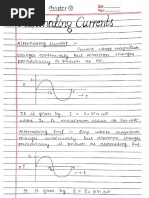 Chapter
Alternating Currents
Alternating current :- Current whose magnitude
changes continuously but direction changes
periodically is known as AC.
It is given by I = I₀ sin ωt
where I₀ = maximum value of current
Alternating Emf :- Emf whose magnitude
changes continuously but direction changes
periodically is known as Alternating Emf.
It is given by E = E₀ sin ωt